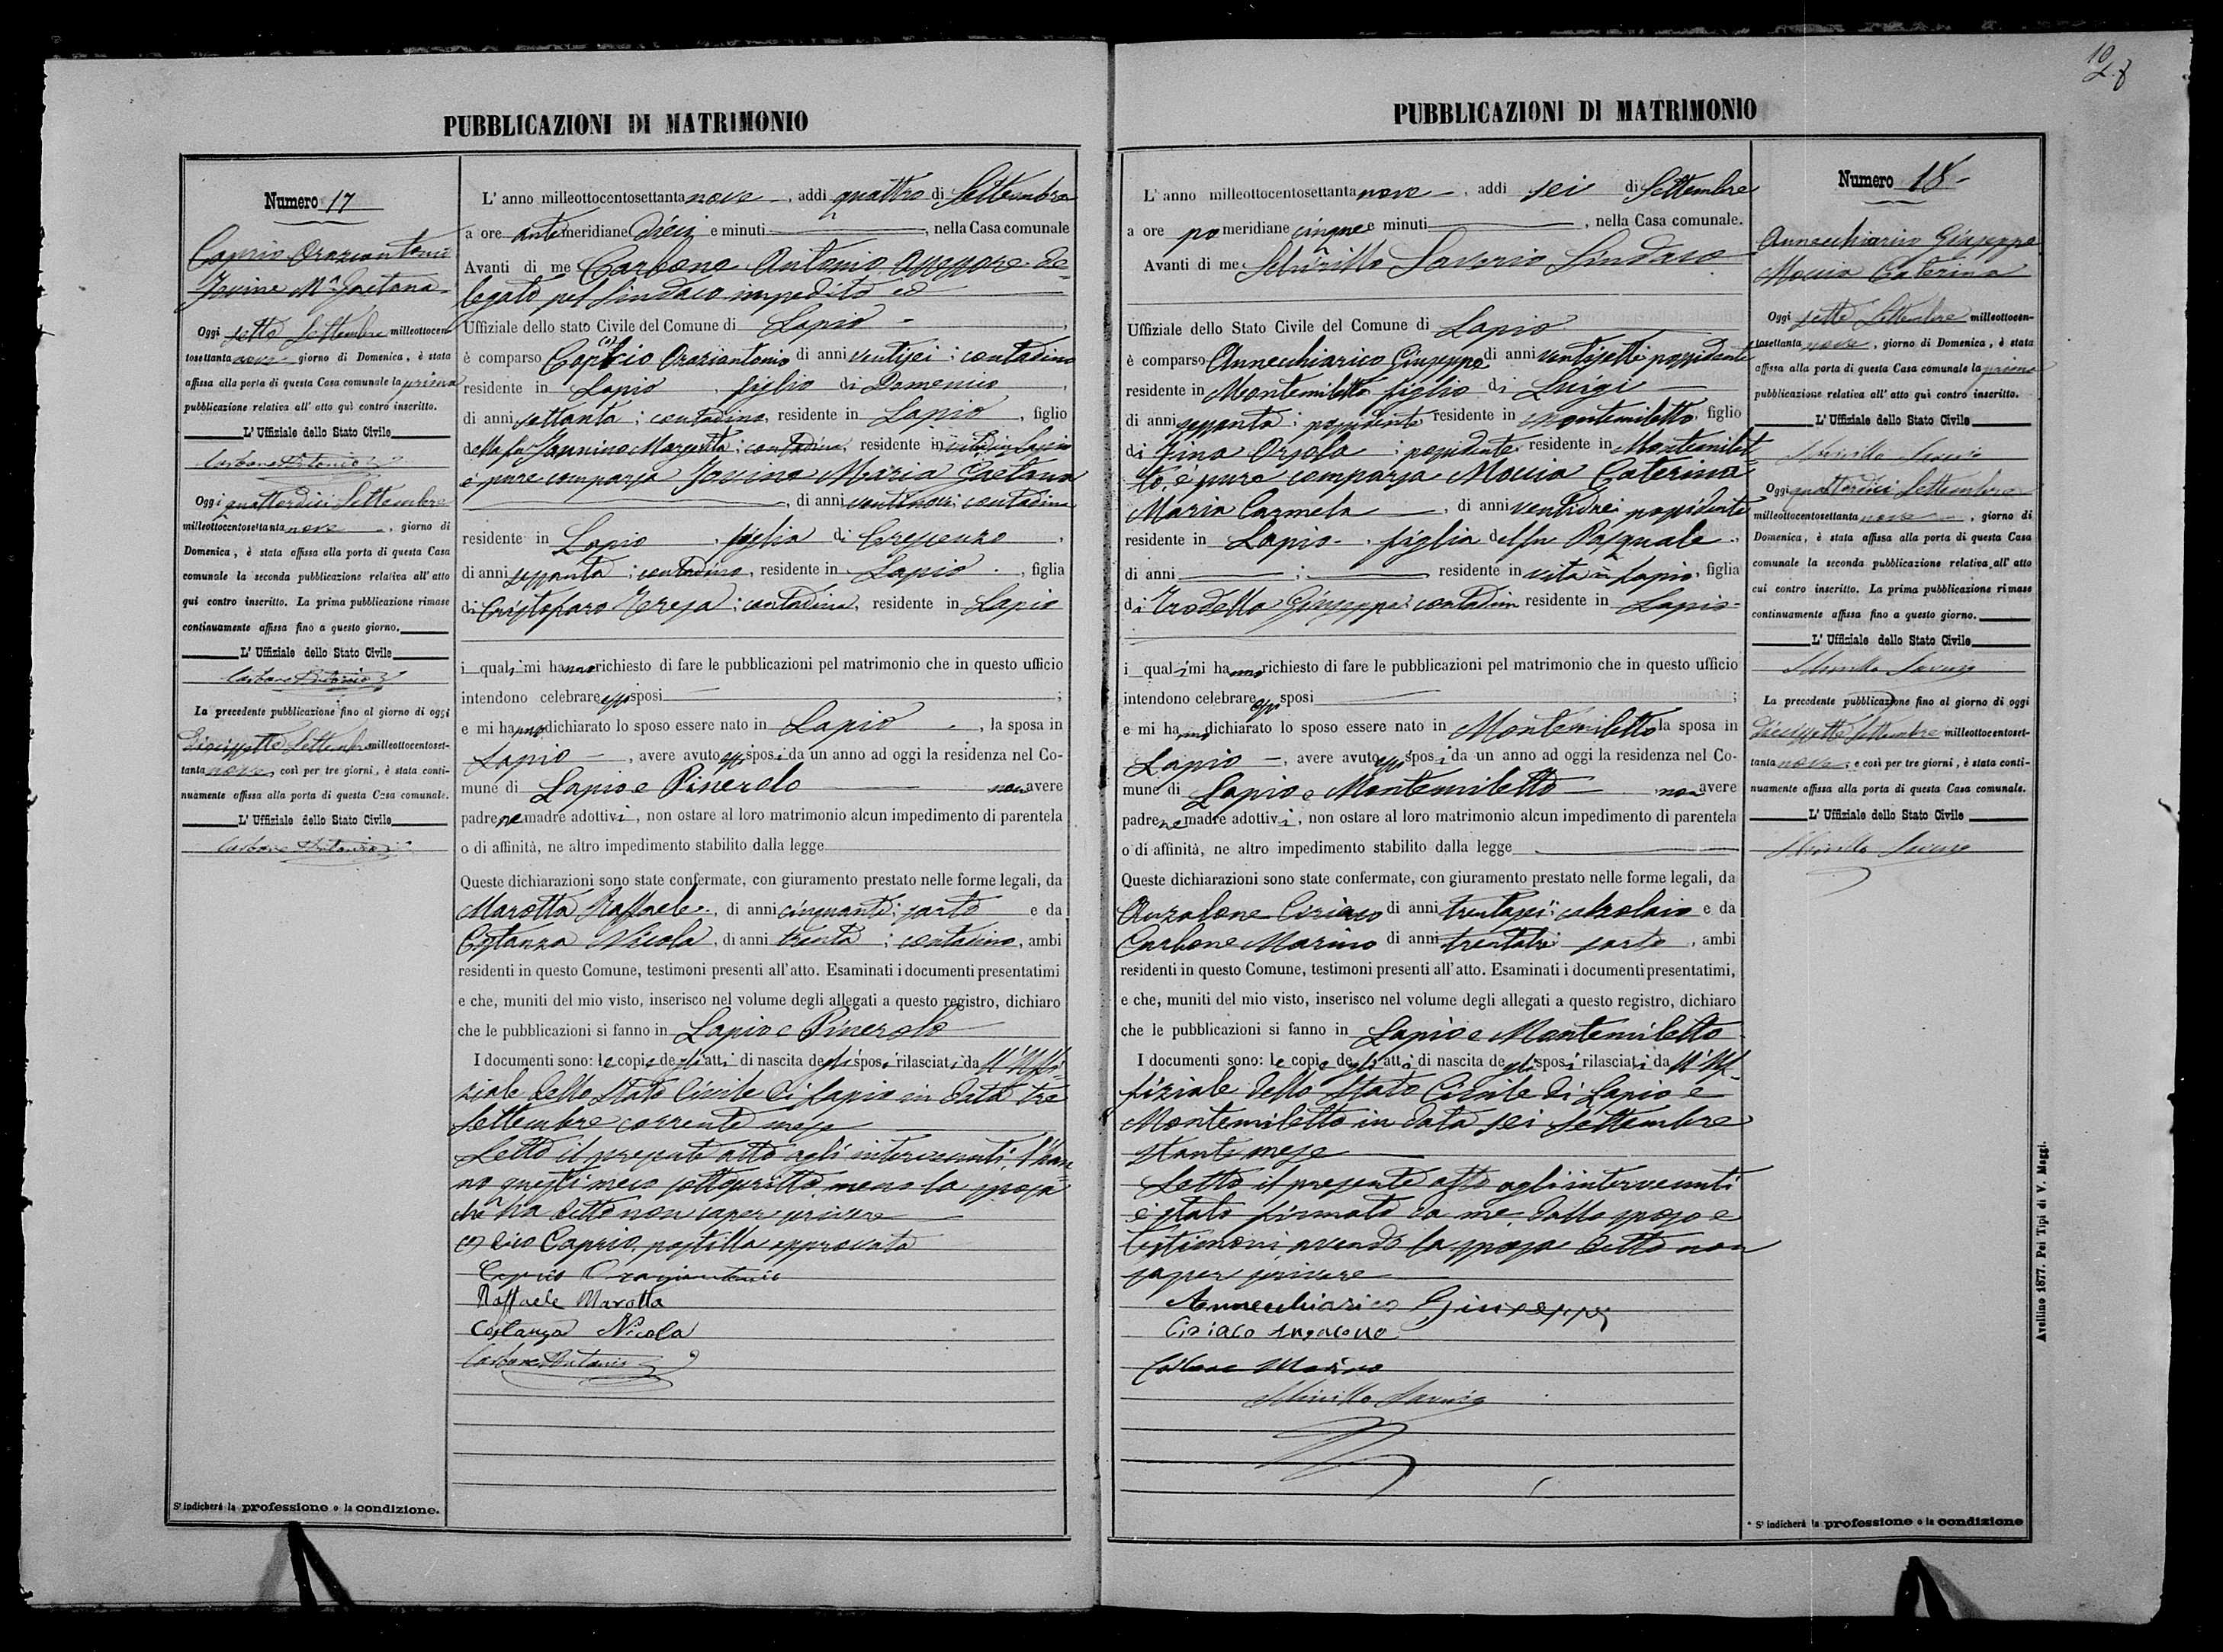 PUBBLICAZIONI DI MATRIMONIO
Numero 17
Caprio Oraziantonio
Iovine Mª Gaetana
Oggi sette Settembre milleottocen-
tosettanta nove giorno di Domenica, è stata
affissa alla porta di questa Casa comunale la prima
pubblicazione relativa all' atto quì contro inscritto.
L' Uffiziale dello Stato Civile
Carbone Antonio
Oggi quattordici Settembre
milleottocentosettanta nove, giorno di
Domenica, è stata affissa alla porta di questa Casa
comunale la seconda pubblicazione relativa all' atto
qui contro inscritto. La prima pubblicazione rimase
continuamente affissa fino a questo giorno.
L' Uffiziale dello Stato Civile
Carbone Antonio
La precedente pubblicazione fino al giorno di oggi
diecissette Settembre milleottocentoset-
tanta nove, così per tre giorni, è stata conti-
nuamente affissa alla porta di questa Casa comunale.
L' Uffiziale dello Stato Civile
Carbone Antonio
S' indicherà la professione o la condizione.
L' anno milleottocentosettanta nove, addi quattro di Settembre
a ore antemeridiane dieci e minuti , nella Casa comunale
Avanti di me Carbone Antonio Assessore de
legato pel Sindaco impedito ed
Uffiziale dello stato Civile del Comune di Lapio
è comparso Oraziantonio di anni ventisei ; contadino
residente in Lapio, figlio di Domenico,
di anni settanta ; contadino, residente in Lapio, figlio
della fu Iannino Margerita ; contadina, residente in vita in Lapio
è pure comparsa Iovine Maria Gaetana
, di anni ; contadina
residente in Lapio, figlia di Crescenzo,
di anni sessanta ; contadino, residente in Lapio, figlia
di Cristofaro Teresa ; contadina, residente in Lapio
i quali mi hanno richiesto di fare le pubblicazioni pel matrimonio che in questo ufficio
intendono celebrare essi sposi ;
e mi hanno dichiarato lo sposo essere nato in Lapio, la sposa in
Lapio, avere avuto essi sposi da un anno ad oggi la residenza nel Co-
mune di Lapio e Pinerolo non avere
padre ne madre adottivi, non ostare al loro matrimonio alcun impedimento di parentela
o di affinità, ne altro impedimento stabilito dalla legge
Queste dichiarazioni sono state confermate, con giuramento prestato nelle forme legali, da
Marotta Raffaele, di anni cinquanta ; sarto e da
Costanza Nicola, di anni trenta ; contadino, ambi
residenti in questo Comune, testimoni presenti all' atto. Esaminati i documenti presentatimi
e che, muniti del mio visto, inserisco nel volume degli allegati a questo registro, dichiaro
che le pubblicazioni si fanno in Lapio e Pinerolo
I documenti sono: le copie degli atti di nascita degli sposi rilasciati dall' Uffi-
ziale dello Stato Civile di Lapio in data tre
Settembre corrente mese
Letto il presente atto agli intervenuti, l' han
no questi meco sottoscritto, meno la sposa
che ha detto non saper scrivere
(1) dico Caprio, postilla approvata
Caprio Oraziantonio
Raffaele Marotta
Costanza Nicola
Carbone Antonio
PUBBLICAZIONI DI MATRIMONIO
L' anno milleottocentosettanta nove, addi sei di Settembre
a ore pomeridiane cinque e minuti , nella Casa comunale.
Avanti di me Saverio Sindaco
Uffiziale dello Stato Civile del Comune di Lapio
è comparso Annecchiarico Giuseppe di anni ventisette possidente
residente in Montemiletto figlio di Luigi
di anni sessanta ; possidente residente in Montemiletto, figlio
di Fina Orsola ; possidente residente in Montemilet
to, è pure comparsa Moccia Caterina
Maria Carmela, di anni ventidue possidente
residente in Lapio, figlia del fu Pasquale,
di anni ; residente in vita in Lapio, figlia
di Trodella Giuseppa contadina residente in Lapio
i quali mi hanno richiesto di fare le pubblicazioni pel matrimonio che in questo ufficio
intendono celebrare essi sposi ;
e mi hanno dichiarato lo sposo essere nato in Montemiletto la sposa in
Lapio, avere avuto essi sposi da un anno ad oggi la residenza nel Co-
mune di Lapio e Montemiletto non avere
padre ne madre adottivi, non ostare al loro matrimonio alcun impedimento di parentela
o di affinità, ne altro impedimento stabilito dalla legge
Queste dichiarazioni sono state confermate, con giuramento prestato nelle forme legali, da
Anzalone Ciriaco di anni trentasei ; calzolaio e da
Carbone Marino di anni trentatre sarto, ambi
residenti in questo Comune, testimoni presenti all' atto. Esaminati i documenti presentatimi,
e che, muniti del mio visto, inserisco nel volume degli allegati a questo registro, dichiaro
che le pubblicazioni si fanno in Lapio e Montemiletto
I documenti sono: le copie degli atti di nascita degli sposi rilasciati dall' Uf-
fiziale dello Stato Civile di Lapio e
Montemiletto in data sei Settembre
stante mese
Letto il presente atto agli intervenuti
è stato firmato da me, dallo sposo e
testimoni, avendo la sposa detto non
saper scrivere
Annecchiarico Giuseppe
Ciriaco Anzalone
Carbone Marino
Saverio
Numero 18
Annecchiarico Giuseppe
Moccia Caterina
Oggi sette Settembre milleottocen-
tosettanta nove, giorno di Domenica, è stata
affissa alla porta di questa Casa comunale la prima
pubblicazione relativa all' atto quì contro inscritto.
L' Uffiziale dello Stato Civile
Saverio
Oggi quattordici Settembre
milleottocentosettanta nove, giorno di
Domenica, è stata affissa alla porta di questa Casa
comunale la seconda pubblicazione relativa all' atto
cui contro inscritto. La prima pubblicazione rimase
continuamente affissa fino a questo giorno.
L' Uffiziale dello Stato Civile
Saverio
La precedente pubblicazione fino al giorno di oggi
diecissette Settembre milleottocentoset-
tanta nove ; e così per tre giorni, è stata conti-
nuamente affissa alla porta di questa Casa comunale.
L' Uffiziale dello Stato Civile
Saverio
* S' indicherà la professione o la condizione
Avellino 1877. Pei Tipi di V. Maggi.